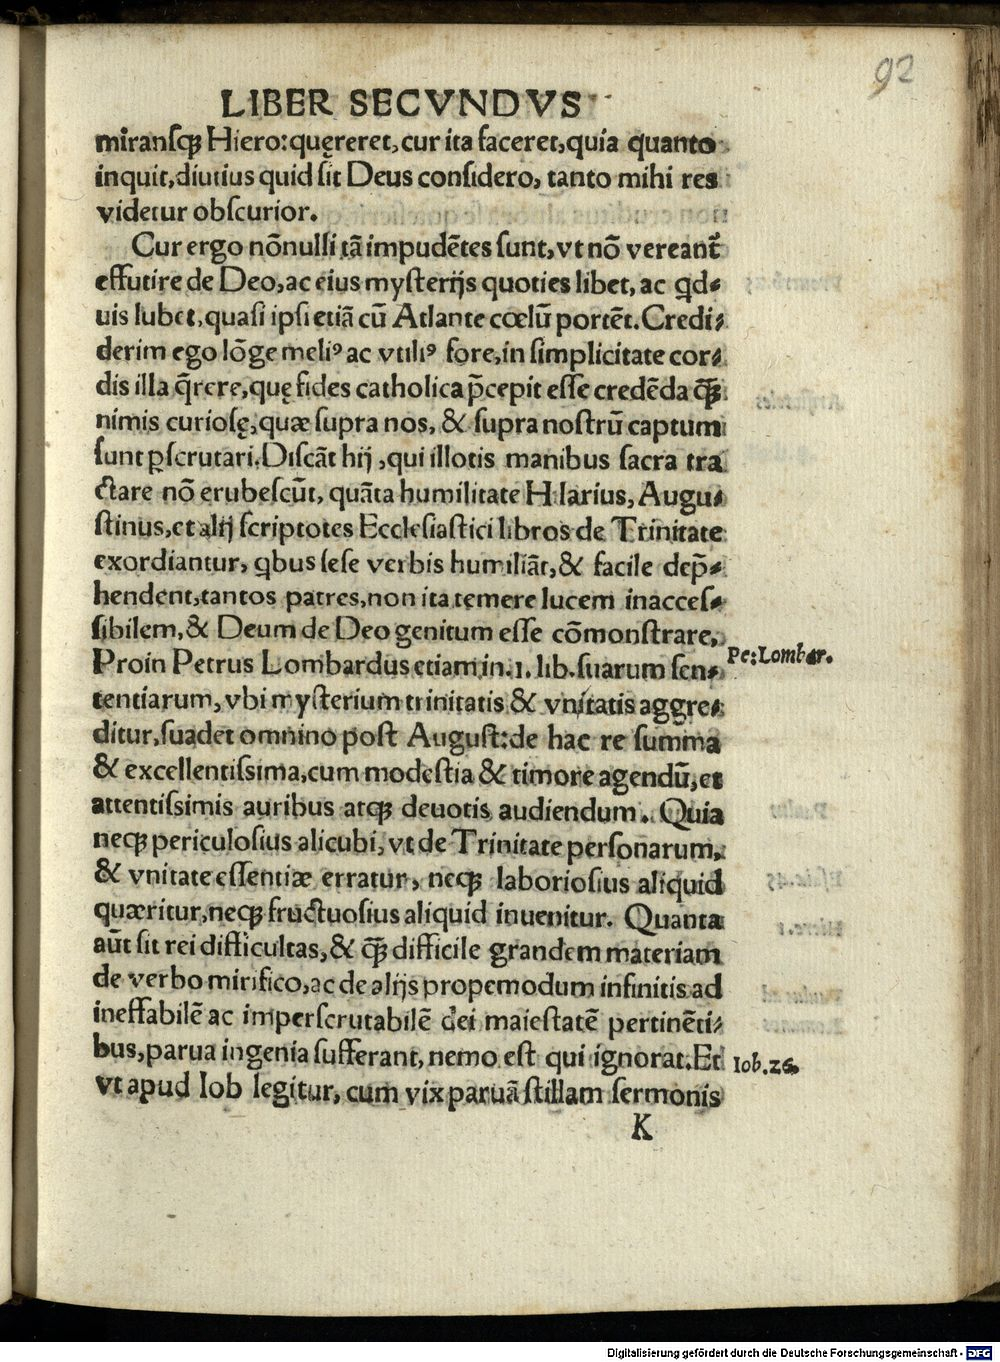 92
LIBER SECVNDVS
miransq; Hiero: quęreret, cur ita faceret, quia quanto
inquit, diutius quid sit Deus considero, tanto mihi res
videtur obscurior.
Cur ergo nōnulli tā impudētes sunt, vt nō vereant᷑
effutire de Deo, ac eius mysterijs quoties libet, ac qd⸗
uis lubet, quasi ipsi etiā cū Atlante cœlū portēt. Credi⸗
derim ego lōge meliꝰ ac vtiliꝰ fore, in simplicitate cor⸗
dis illa q̄rere, quę fides catholica p̄cepit esse credēda q̄ꝫ
nimis curiosę, quæ supra nos, & supra nostrū captum
sunt ꝑscrutari. Discāt hij, qui illotis manibus sacra tra
ctare nō erubescūt, quāta humilitate Hilarius, Augu⸗
stinus, et alij scriptotes Ecclesiastici libros de Trinitate
exordiantur, qbus sese verbis humiliāt, & facile dep̄⸗
hendent, tantos patres, non ita temere lucem inacces⸗
sibilem, & Deum de Deo genitum esse cōmonstrare,
Proin Petrus Lombardus etiam in. 1. lib. suarum sen⸗
Pe: Lombar.
tentiarum, vbi mysterium trinitatis & vnitatis aggre⸗
ditur, suadet omnino post August: de hac re summa
& excellentissima, cum modestia & timore agendū, et
attentissimis auribus atq; deuotis audiendum. Quia
neq; periculosius alicubi, vt de Trinitate personarum,
& vnitate essentiæ erratur, neq; laboriosius aliquid
quæritur, neq; fructuosius aliquid inuenitur. Quanta
aūt sit rei difficultas, & q̄ꝫ difficile grandem materiam
de verbo mirifico, ac de alijs propemodum infinitis ad
ineffabilē ac imperscrutabilē dei maiestatē pertinēti⸗
bus, parua ingenia sufferant, nemo est qui ignorat. Et
Iob. 26.
vt apud Iob legitur, cum vix paruā stillam sermonis
K
Digitalisierung gefördert durch die Deutsche Forschungsgemeinschaft - DFG